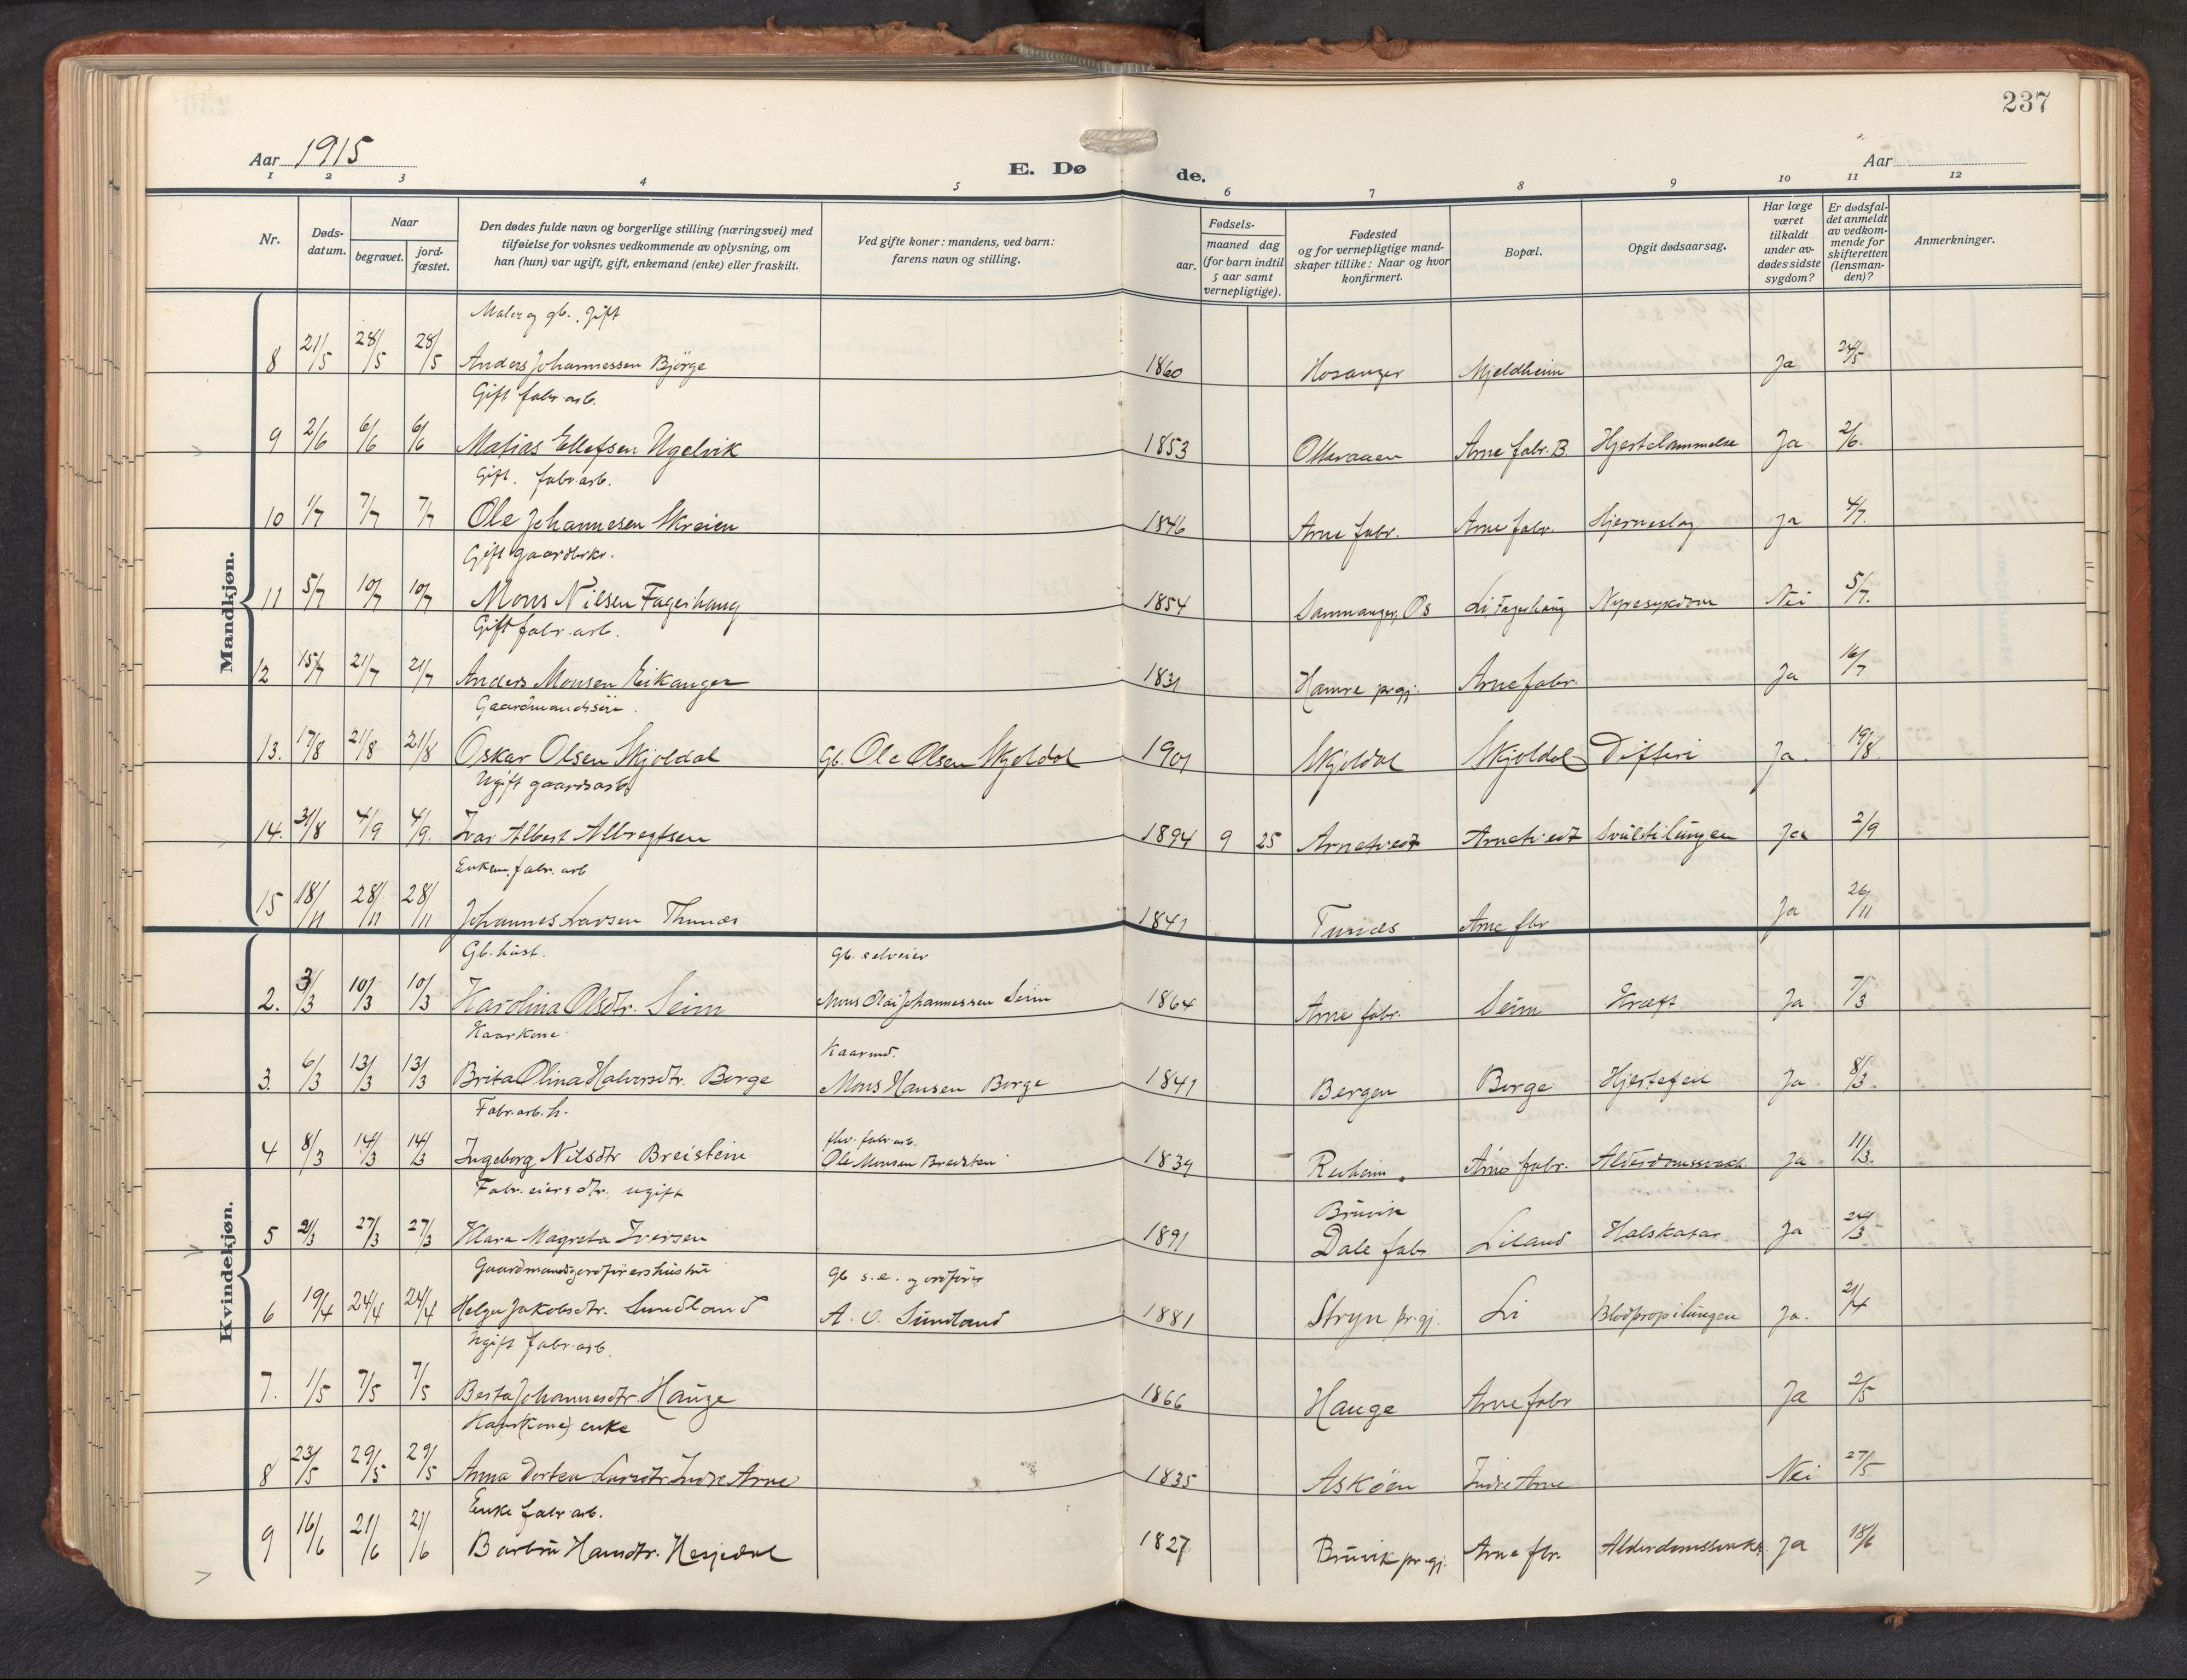 237
Aar 1915
E. Døde.
Aar
1 2 3 4 5 6 7 8 9 10 11 12
Nr.
Døds-datum.
Naar
begravet.
jord-fæstet.
Den dødes fulde navn og borgerlige stilling (næringsvei) med
tilføielse for voksnes vedkommende av oplysning, om
han (hun) var ugift, gift, enkemand (enke) eller fraskilt.
Ved gifte koner: mandens, ved barn:
farens navn og stilling.
Fødsels-
aar.
maaned dag
(for barn indtil
5 aar samt
vernepligtige).
Fødested
og for vernepligtige mand-
skaper tillike: Naar og hvor
konfirmert.
Bopæl.
Opgit dødsaarsag.
Har læge
været
tilkaldt
under av-
dødes sidste
sygdom?
Er dødsfal-
det anmeldt
av vedkom-
mende for
skifteretten
(lensman-
den)?
Anmerkninger.
Mandkjøn.
Maler og gb. gift
8 21/5 28/5 28/5 Anders Johannessen Bjørge 1860 Hosanger Mjeldheim Ja 24/5
Gift fabr. arb.
9 2/6 6/6 6/6 Matias Ellefsen Ugelvik 1853 Arne fabr. B. Hjertelammelse Ja 2/6.
Gift. fabr arb.
10 1/7 7/7 7/7 Ole Johannesen Skreien 1846 Arne fabr. Arne fabr. Hjerneslag Ja 4/7.
Gift gaardbrkr.
11 5/7 10/7 10/7 Mons Nilsen Fagerhaug 1854 Samnanger, Os Li, Fagerhaug Nyresykdom Nei 5/7.
Gift fabr. arb.
12 15/7 21/7 21/7 Anders Monsen Eikanger 1831 Hamre prgj. Arne fabr. Ja 16/7
Gaardmandssøn.
13. 17/8 21/8 21/8 Oskar Olsen Skjoldal Gb. Ole Olsen Skjoldal 1901 Skjoldal Skjoldal Difteri Ja. 19/8.
Ugift gaardsarb.
14. 31/8 4/9 4/9. Ivar Albert Albregtsen 1894 9 25 Arnetvedt Arnetvedt Svulst i lungen Ja 2/9
Enkem. fabr. arb
15 18/11 28/11 28/11 Johannes Larsen Thunes 1841 Tunes Arne fbr Ja 26/11
Kvindekjøn.
Gb. hust. Gb. selveier
2. 3/3 10/3 10/3 Karolina Olsdtr. Seim Mons Olai Johannessen Seim 1864 Arne fabr. Seim Kræft Ja 7/3
Kaarkone Kaarmd.
3. 6/3 13/3 13/3 Brita Olina Halvorsdtr. Borge Mons Hansen Borge 1841 Bergen Borge Hjertefeil Ja 8/3.
Fabr. arb. h. fhv. fabr. arb.
4 8/3 14/3 14/3 Ingeborg Nilsdtr Breistein Ole Monsen Breistein 1839 Arne fabr. Ja 11/3.
Fabr. eiers dtr. ugift Bruvik
5 21/3 27/3 27/3 Klara Magreta Iversen 1891 Dale fabr Liland Halskatar Ja 24/3
Gaardmands og ordførers hustru Gb s.e. og ordfører
6 19/4 24/4 24/4 Helga Jakobsdtr. Sundland A. O. Sundland 1881 Stryn pr.gj. Li Blodprop i lungen Ja. 21/4
Ugift fabr. arb.
7. 1/5 7/5 7/5 Berta Johannesdtr. Hauge 1866 Hauge Arne fabr Ja 2/5
Kaar(kone) enke
8 23/5 29/5 29/5 Anna Dortea Larsdtr Indre Arne 1835 Askøen Indre Arne Nei 27/5
Enke fabr arb.
9 16/6 21/6 21/6 Barbru Hansdtr. Hesjedal 1827 Bruvik pr.gj. Arne fbr. Ja 18/6